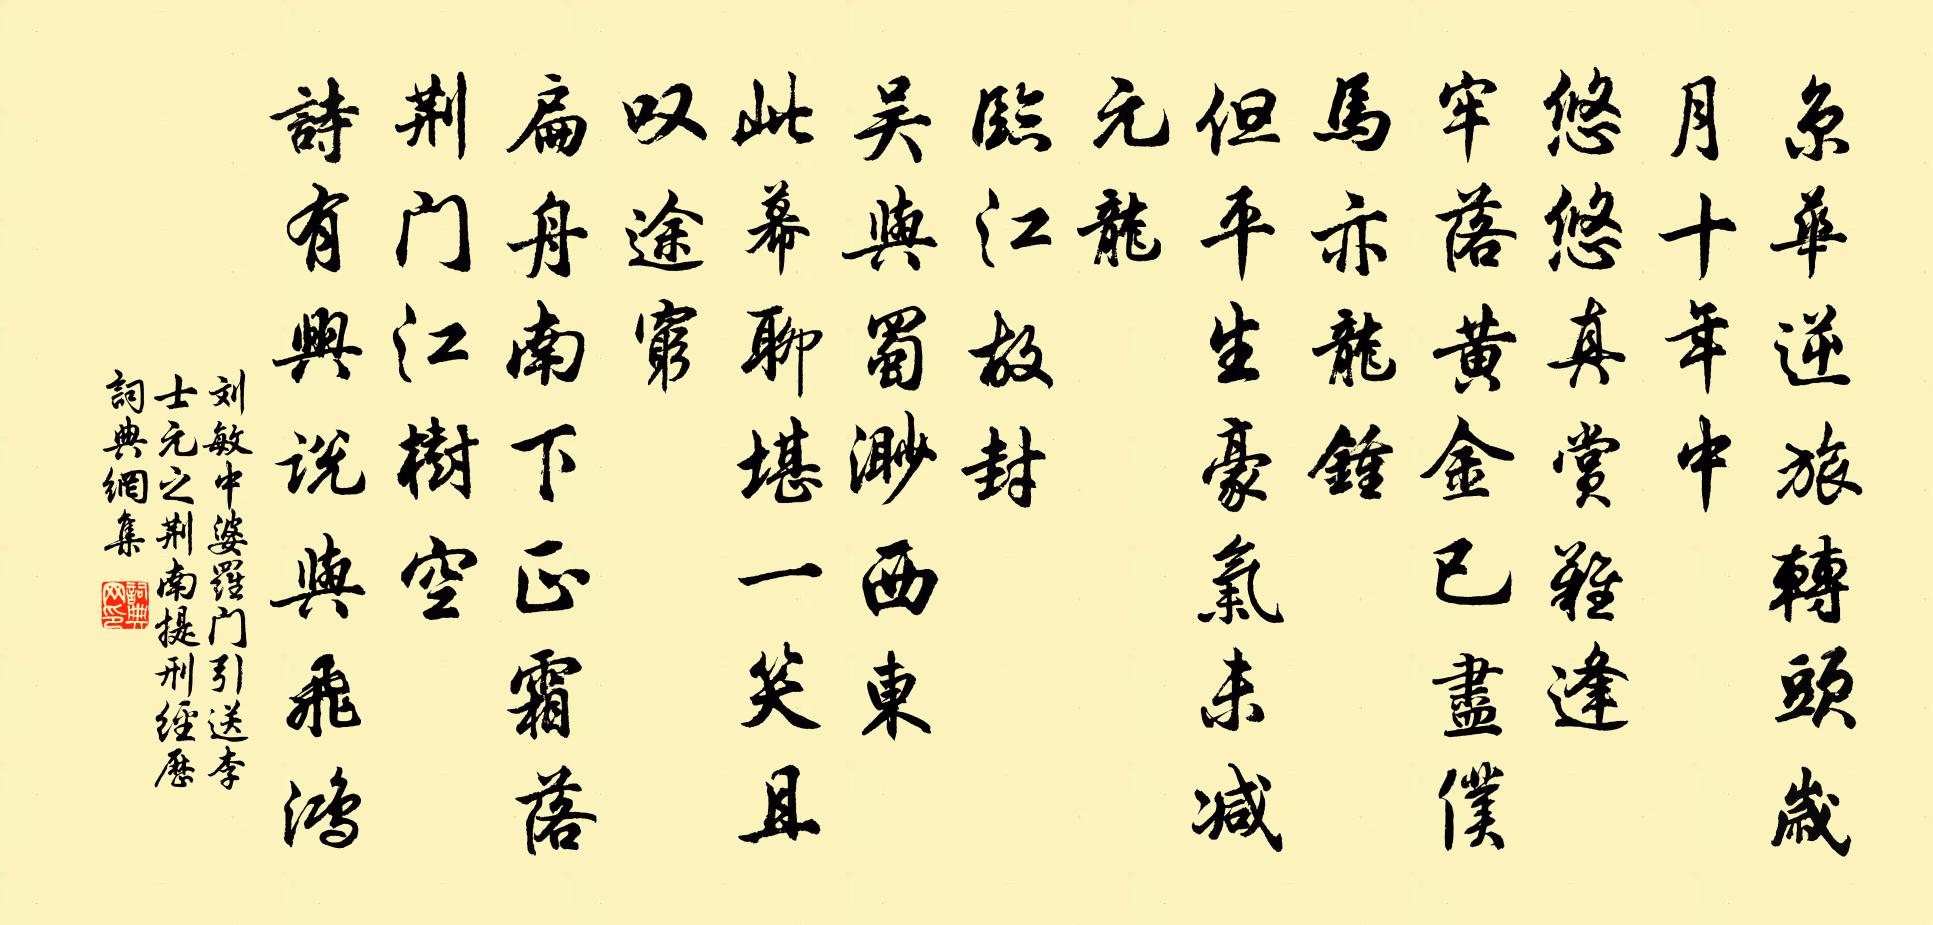 京華逆旅轉頭歲
月十年中
悠悠真賞難逢
牢落黃金已盡僕
馬亦龍鍾
但平生豪氣未減
元龍
臨江故封
吴與蜀渺西東
此幕聊堪一笑且
叹途窮
扁舟南下正霜落
荆门江樹空
詩有興说與飛鸿
刘敏中婆羅门引送李
士元之荆南提刑經歷
詞典網集
詞典网印